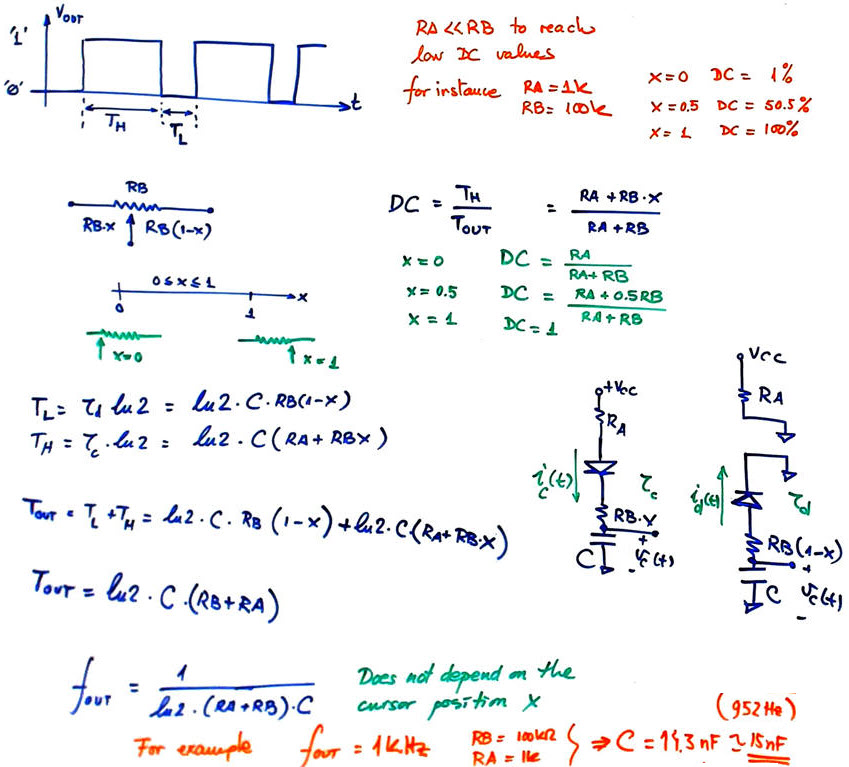 V_OUT
'1'
'0'
t
T_H
T_L
RA << RB to reach
low DC values
for instance RA = 1k
RB = 100k
x=0 DC = 1%
x=0.5 DC = 50.5%
x=1 DC = 100%
RB
RB·x RB(1-x)
DC = T_H / T_OUT = (RA + RB·x) / (RA + RB)
x=0 DC = RA / (RA+RB)
x=0.5 DC = (RA + 0.5RB) / (RA + RB)
x=1 DC = 1
0 ≤ x ≤ 1
x
0 1
x=0 x=1
T_L = τ_d ln2 = ln2 · C · RB(1-x)
T_H = τ_c · ln2 = ln2 · C (RA + RBx)
T_OUT = T_L + T_H = ln2 · C · RB (1-x) + ln2 · C · (RA + RB·x)
T_OUT = ln2 · C · (RB + RA)
+Vcc
RA
i_c(t)
τ_c
RB·x
+
C
V_c(t)
-
Vcc
RA
i_d(t)
τ_d
RB(1-x)
+
C
V_c(t)
-
f_OUT = 1 / (ln2 · (RA+RB) · C)
Does not depend on the
cursor position x
For example f_OUT = 1 kHz
RB = 100kΩ
RA = 1k
⇒ C = 14.3 nF ≃ 15nF
(952 Hz)